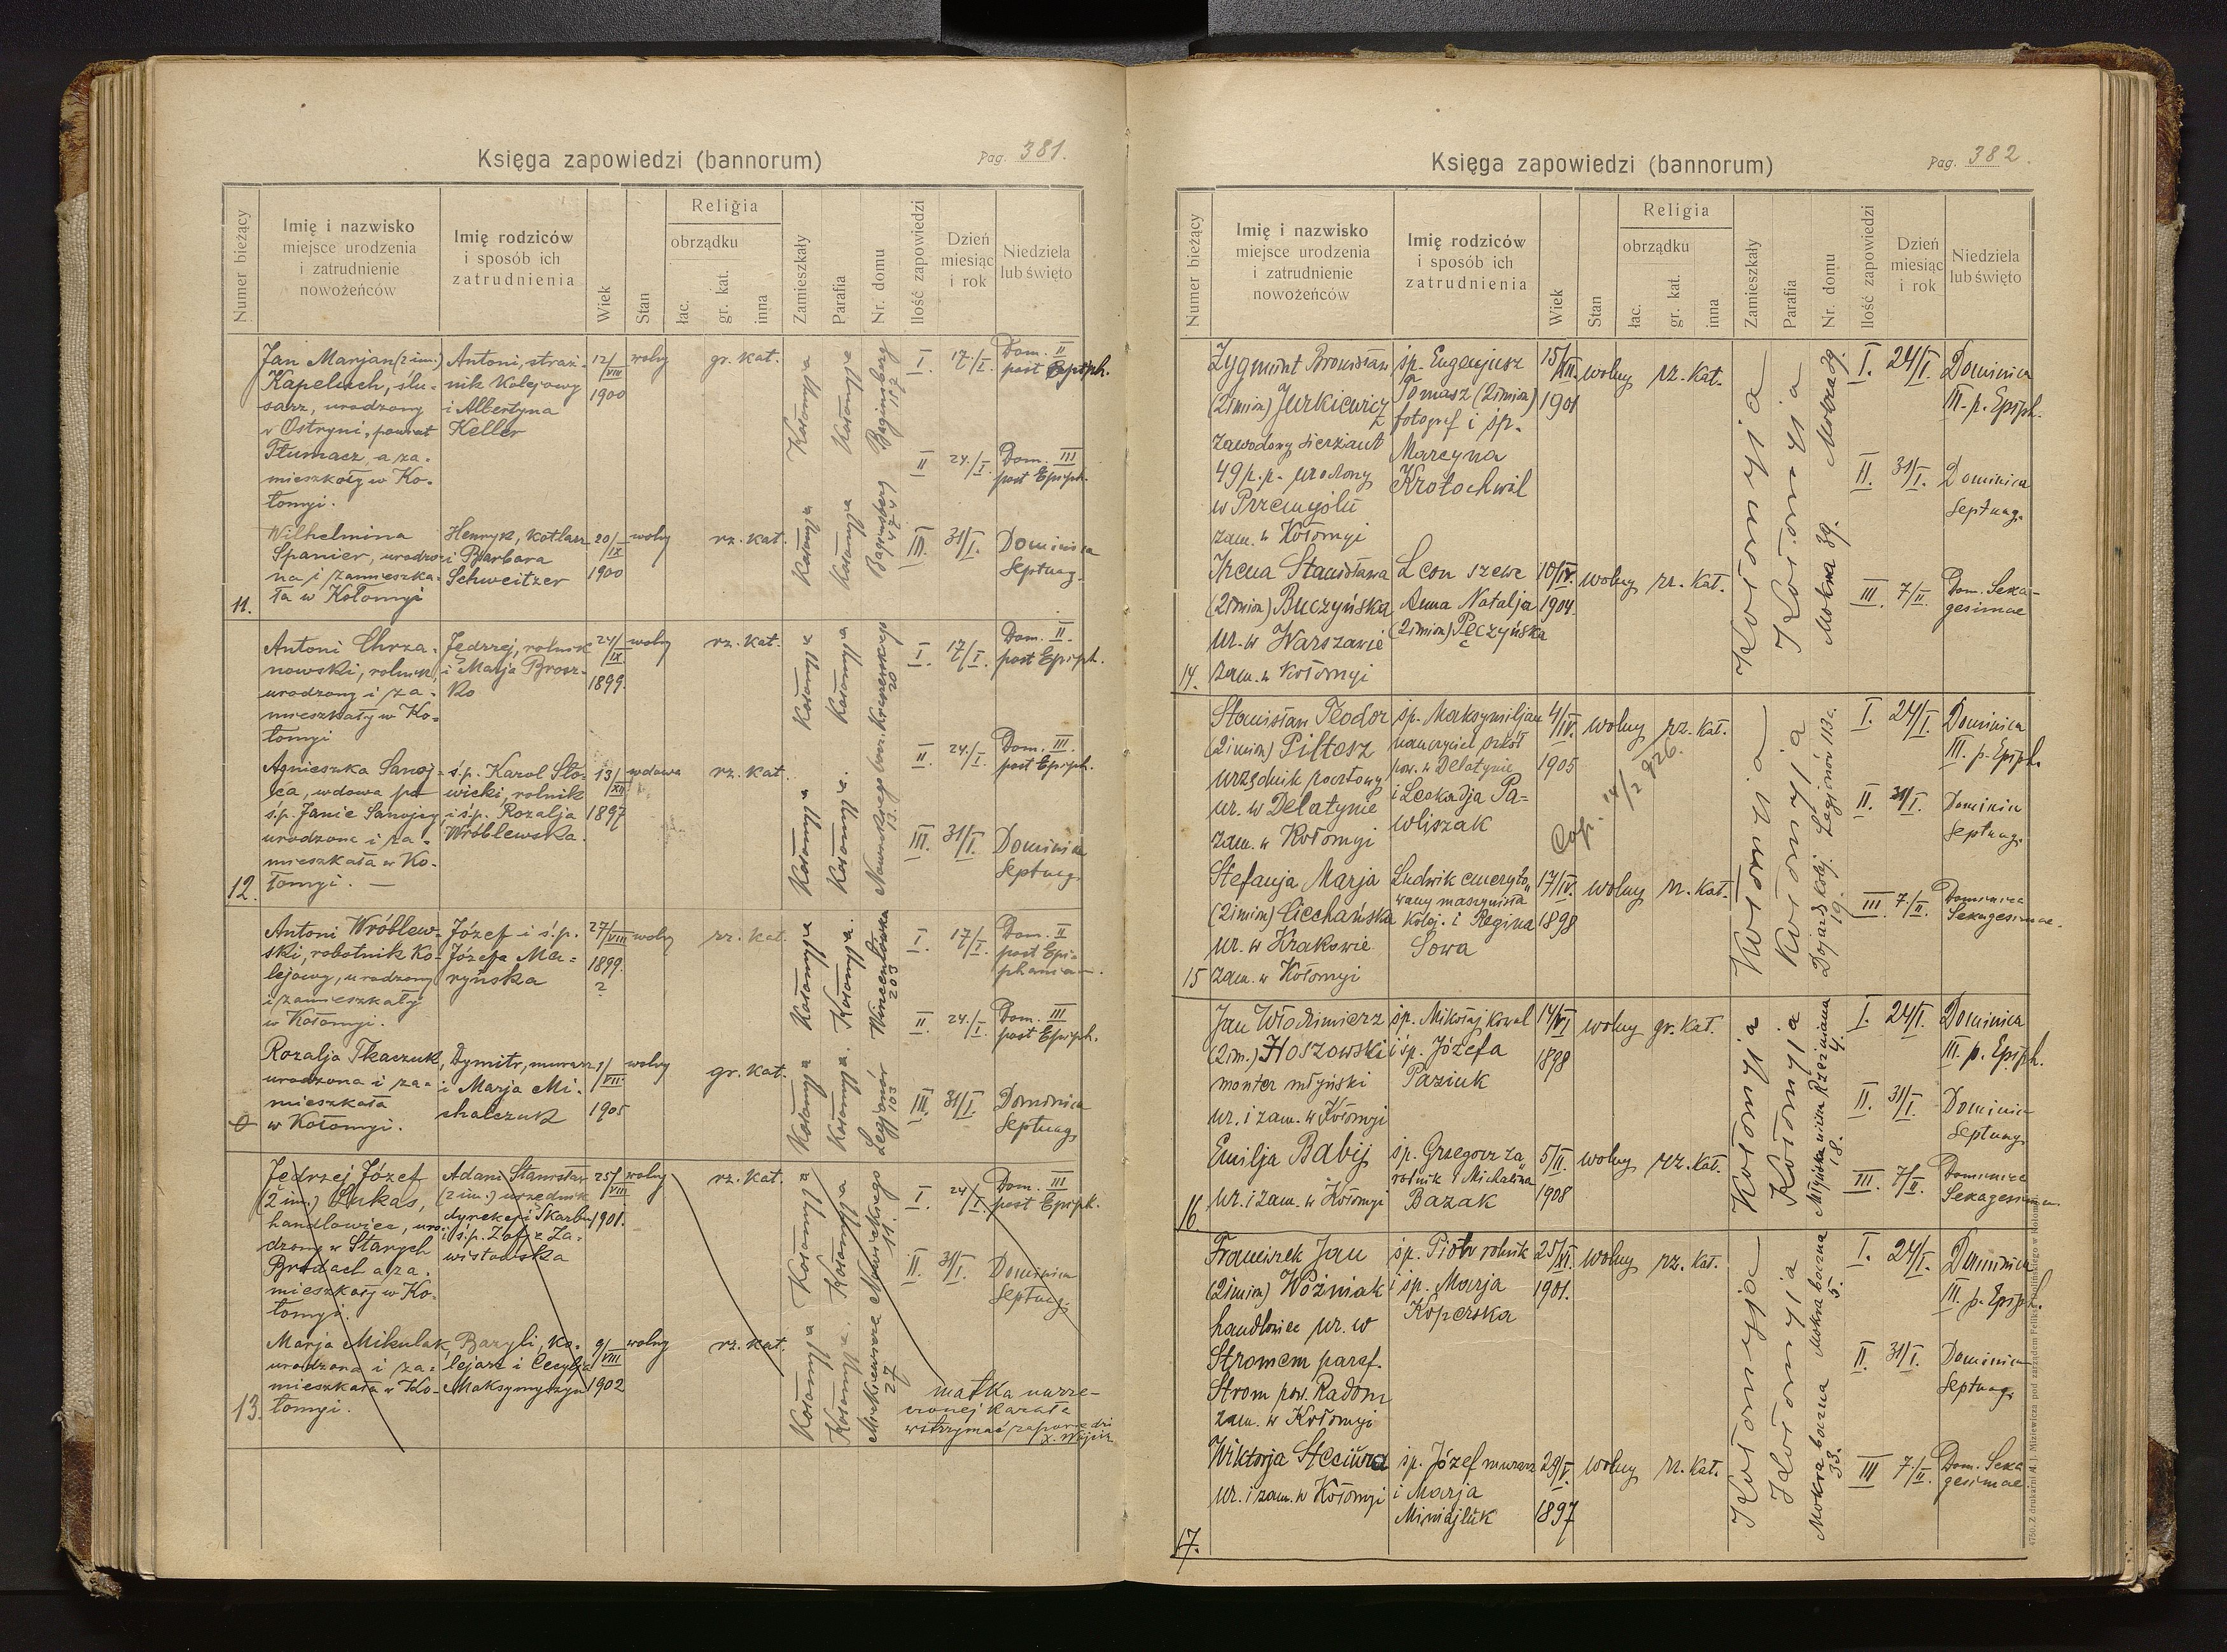 Księga zapowiedzi (bannorum)
Pag. 381.
Numer bieżący
Imię i nazwisko
miejsce urodzenia
i zatrudnienie
nowożeńców
Imię rodziców
i sposób ich
zatrudnienia
Wiek
Stan
Religia
obrządku
łac.
gr. kat.
inna
Zamieszkały
Parafia
Nr. domu
Ilość zapowiedzi
Dzień
miesiąc
i rok
Niedziela
lub święto
11.
Jan Marjan (2 im.)
Kapeluch, ślu-
sarz, urodzony
w Ostryni, powiat
Tłumacz, a za-
mieszkały w Ko-
łomyi.
Antoni, straż-
nik Kolejowy
i Albertyna
Keller
12/VIII
1900
wolny
gr. kat.
Kołomyja
Kołomyja
Baginsberg
157
I
17./I.
Dom. II
post Epiph.
II
24./I.
Dom. III
post Epiph.
Wilhelmina
Spanier, urodzo-
na i zamieszka-
ła w Kołomyi
Henryk, kotlarz
i Barbara
Schweitzer
20/IX
1900
wolny
rz. kat.
Kołomyja
Kołomyja
Baginsberg
474
III.
31/I.
Dominica
Septuag.
12.
Antoni Chrza-
nowski, rolnik,
urodzony i za-
mieszkały w Ko-
łomyi
Jędrzej, rolnik
i Marja Brosz-
ko
24/IX
1899.
wolny
rz. kat.
Kołomyja
Kołomyja
20
I.
17/I.
Dom. II.
post Epiph.
II.
24./I.
Dom. III.
post Epiph.
Agnieszka Sanoj-
ca, wdowa po
ś.p. Janie Sanojcy
urodzona i za-
mieszkała w Ko-
łomyi. —
ś.p. Karol Sło-
wicki, rolnik
i ś.p. Rozalja
Wróblewska.
13/XII
1897
wdowa
rz. kat.
Kołomyja
Kołomyja.
13.
III.
31/I.
Dominica
Septuag.
Antoni Wróblew-
ski, robotnik Ko-
lejowy, urodzony
i zamieszkały
w Kołomyi.
Józef i ś.p.
Józefa Ma-
ryńska
27/VIII
1899.
?
wolny
rz. kat.
Kołomyja
Kołomyja.
Wincentówka
203
I.
17/I.
Dom. II
post Epi-
phaniam.
II.
24./I.
Dom. III
post Epiph.
Rozalja Tkaczuk,
urodzona i za-
mieszkała
w Kołomyi.
Dymitr, murarz
i Marja Mi-
chalczuk
1/VII.
1905
wolny
gr. kat.
Kołomyja
Kołomyja.
Legjonów
103
III.
31/I.
Dominica
Septuag.
13.
Jędrzej Józef
(2 im.) Lukas,
handlowiec, uro-
dzony w Starych
Brodach a za-
mieszkały w Ko-
łomyi.
Adam Stanisław
(2 im.) urzędnik
dyrekcji Skarbu
i ś.p. Zofja Za-
wistowska
25/VIII
1901.
wolny
rz. kat.
Kołomyja
Kołomyja
Nowickiego
11.
I.
24/I.
Dom. III
post Epiph.
II.
31/I.
Dominica
Septuag.
Marja Mikulak,
urodzona i za-
mieszkała w Ko-
łomyi.
Bazyli, ko-
lejarz i Cecylja
Maksymyszyn
9/VIII
1902
wolny
rz. kat.
Kołomyja
Kołomyja.
Mickiewicza
27
matka narze-
czonej kazała
wstrzymać zapowiedzi
X. Wójcik
Księga zapowiedzi (bannorum)
Pag. 382.
Numer bieżący
Imię i nazwisko
miejsce urodzenia
i zatrudnienie
nowożeńców
Imię rodziców
i sposób ich
zatrudnienia
Wiek
Stan
Religia
obrządku
łac.
gr. kat.
inna
Zamieszkały
Parafia
Nr. domu
Ilość zapowiedzi
Dzień
miesiąc
i rok
Niedziela
lub święto
14.
Zygmunt Bronisław
(2 imion) Jurkiewicz
zawodowy sierżant
49 p.p. urodzony
w Przemyślu
zam. w Kołomyi
śp. Eugenjusz
Tomasz (2 imion)
fotograf i śp.
Marcyna
Krotochwil
15/XII.
1901
wolny
rz. kat.
Kołomyja
Kołomyja
Mokra 39.
I.
24/I.
Dominica
III. p. Epiph.
II.
31/I.
Dominica
Septuag.
Irena Stanisława
(2 imion) Buczyńska
ur. w Warszawie
zam. w Kołomyi
Leon szewc
Anna Natalja
(2 imion) Pęczyńska
10/IV.
1904.
wolny
rz. kat.
Mokra 39.
III.
7/II.
Dom. Sexa-
gesimae
15
Stanisław Teodor
(2 imion) Piłtosz
urzędnik pocztowy
ur. w Delatynie
zam. w Kołomyi
śp. Maksymiljan
nauczyciel szkół
pow. w Delatynie
i Leokadja Pa-
wliszak
4/IV.
1905
wolny
rz. kat.
Cop. 14/2 926.
Kołomyja
Kołomyja
Legjonów 113c.
I.
24/I.
Dominica
III. p. Epiph.
II.
31/I.
Dominica
Septuag.
Stefanja Marja
(2 imion) Ciechańska
ur. w Krakowie
zam. w Kołomyi
Ludwik emeryto-
wany maszynista
kolej. i Regina
Sowa
17/IV.
1898
wolny
rz. kat.
Dojazd kolej.
19.
III.
7/II.
Dominica
Sexagesimae.
16
Jan Włodzimierz
(2 im.) Hoszowski
monter młyński
ur. i zam. w Kołomyi
śp. Mikołaj kowal
i śp. Józefa
Paziuk
14/VI
1898
wolny
gr. kat.
Kołomyja
Kołomyja
4.
I.
24/I.
Dominica
III. p. Epiph.
II.
31/I.
Dominica
Septuag.
Emilja Babij
ur. i zam. w Kołomyi
śp. Grzegorz za
rolnik i Michalina
Bazak
5/II.
1908
wolny
rz. kat.
Młyńska
18.
III.
7/II.
Dominica
Sexagesimae.
17.
Franciszek Jan
(2 imion) Woźniak
handlowiec ur. w
Stromem paraf.
Strom pow. Radom
zam. w Kołomyi
śp. Piotr rolnik
i śp. Marja
Koperska
25/VI.
1901.
wolny
rz. kat.
Kołomyja
Kołomyja
Mokra boczna
5.
I.
24/I.
Dominica
III. p. Epiph.
II.
31/I.
Dominica
Septuag.
Wiktorja Steciura
ur. i zam. w Kołomyi
śp. Józef murarz
i Marja
Miniajluk
29/V.
1897
wolny
rz. kat.
Mokra boczna
33.
III
7/II.
Dom. Sexa
gesimae.